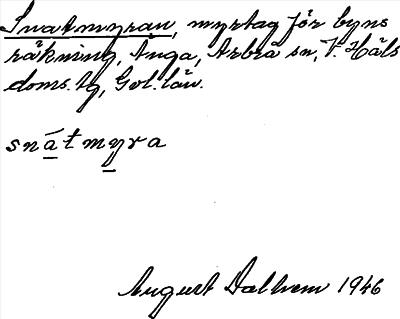 Snatmyran, myrtag för byns
räkning, Änga, Arbrå sn, V. Häls
doms.tg, Gvl. län.
snátmyra
August Dalhem 1946